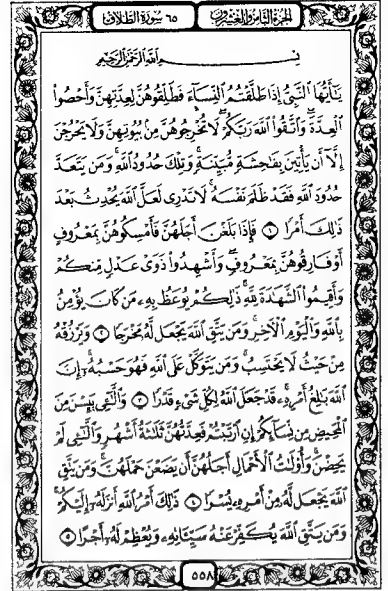 الجزء الثامن والعشرون
٦٥ سورة الطلاق
بِسْمِ ٱللَّهِ ٱلرَّحْمَٰنِ ٱلرَّحِيمِ
يَٰٓأَيُّهَا ٱلنَّبِىُّ إِذَا طَلَّقْتُمُ ٱلنِّسَآءَ فَطَلِّقُوهُنَّ لِعِدَّتِهِنَّ وَأَحْصُوا۟
ٱلْعِدَّةَ وَٱتَّقُوا۟ ٱللَّهَ رَبَّكُمْ لَا تُخْرِجُوهُنَّ مِنۢ بُيُوتِهِنَّ وَلَا يَخْرُجْنَ
إِلَّآ أَن يَأْتِينَ بِفَٰحِشَةٍ مُّبَيِّنَةٍ وَتِلْكَ حُدُودُ ٱللَّهِ وَمَن يَتَعَدَّ
حُدُودَ ٱللَّهِ فَقَدْ ظَلَمَ نَفْسَهُۥ لَا تَدْرِى لَعَلَّ ٱللَّهَ يُحْدِثُ بَعْدَ
ذَٰلِكَ أَمْرًا ١ فَإِذَا بَلَغْنَ أَجَلَهُنَّ فَأَمْسِكُوهُنَّ بِمَعْرُوفٍ
أَوْ فَارِقُوهُنَّ بِمَعْرُوفٍ وَأَشْهِدُوا۟ ذَوَىْ عَدْلٍ مِّنكُمْ
وَأَقِيمُوا۟ ٱلشَّهَٰدَةَ لِلَّهِ ذَٰلِكُمْ يُوعَظُ بِهِۦ مَن كَانَ يُؤْمِنُ
بِٱللَّهِ وَٱلْيَوْمِ ٱلْءَاخِرِ وَمَن يَتَّقِ ٱللَّهَ يَجْعَل لَّهُۥ مَخْرَجًا ٢ وَيَرْزُقْهُ
مِنْ حَيْثُ لَا يَحْتَسِبُ وَمَن يَتَوَكَّلْ عَلَى ٱللَّهِ فَهُوَ حَسْبُهُۥٓ إِنَّ
ٱللَّهَ بَٰلِغُ أَمْرِهِۦ قَدْ جَعَلَ ٱللَّهُ لِكُلِّ شَىْءٍ قَدْرًا ٣ وَٱلَّٰٓـِٔى يَئِسْنَ مِنَ
ٱلْمَحِيضِ مِن نِّسَآئِكُمْ إِنِ ٱرْتَبْتُمْ فَعِدَّتُهُنَّ ثَلَٰثَةُ أَشْهُرٍ وَٱلَّٰٓـِٔى لَمْ
يَحِضْنَ وَأُو۟لَٰتُ ٱلْأَحْمَالِ أَجَلُهُنَّ أَن يَضَعْنَ حَمْلَهُنَّ وَمَن يَتَّقِ
ٱللَّهَ يَجْعَل لَّهُۥ مِنْ أَمْرِهِۦ يُسْرًا ٤ ذَٰلِكَ أَمْرُ ٱللَّهِ أَنزَلَهُۥٓ إِلَيْكُمْ
وَمَن يَتَّقِ ٱللَّهَ يُكَفِّرْ عَنْهُ سَيِّـَٔاتِهِۦ وَيُعْظِمْ لَهُۥٓ أَجْرًا ٥
٥٥٨